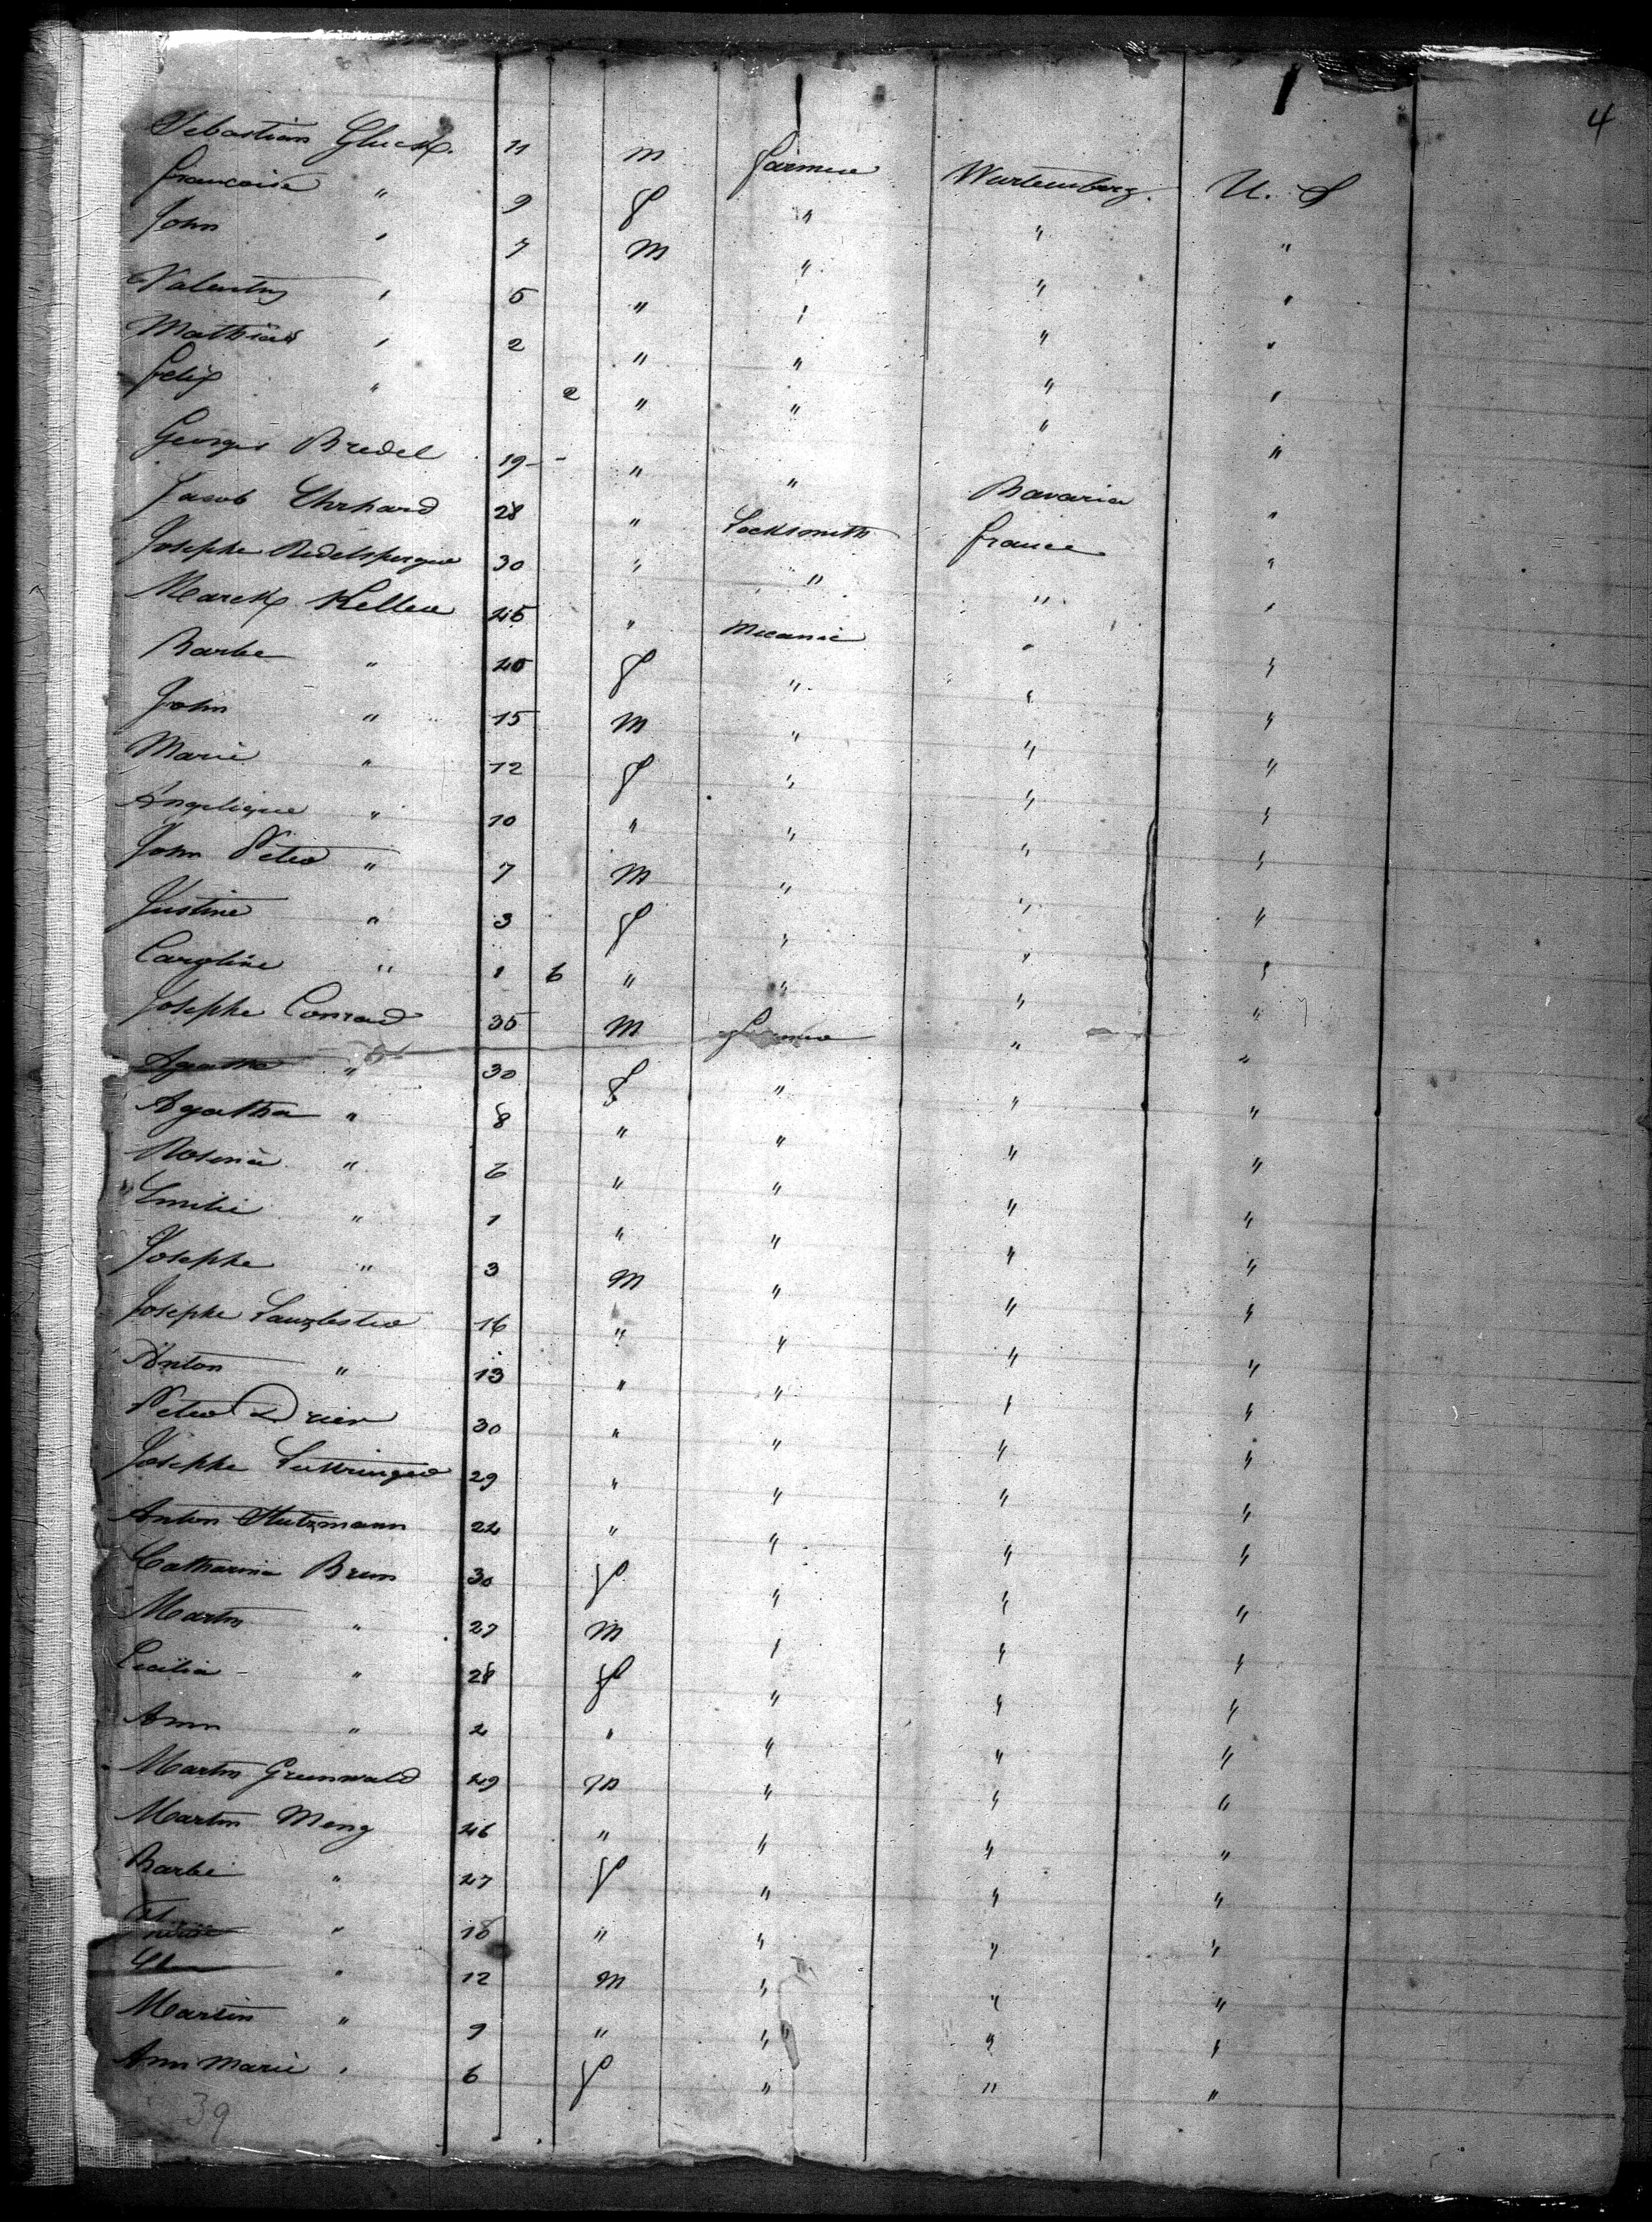 4
Sebastian Gluck. 11 m farmer Wurtemberg. U. S
Francoise " 9 f " " "
John " 7 m " " "
Valentin " 5 " " " "
Mathias " 2 " " " "
Felix " 2 " " " "
Georges Bredel 19 - " " Bavaria "
Jacob Ehrhard 28 " Locksmith France "
Josephe Ridelsperger 30 " " " "
Marck Keller 45 " Mecanic " "
Barbe " 40 f " " "
John " 15 m " " "
Marie " 12 f " " "
Angelique " 10 " " " "
John Peter " 7 m " " "
Justine " 3 f " " "
Caroline " 1 6 " " " "
Josephe Conrad 35 m farmer " "
Agatha " 30 f " " "
Agatha " 8 " " " "
Rosina " 6 " " " "
Emilie " 1 " " " "
Josephe " 3 m " " "
Josephe 16 " " " "
Anton " 13 " " " "
Peter Drier 30 " " " "
Josephe 29 " " " "
Anton Stutzmann 22 " " " "
Catharina Brun 30 f " " "
Martin " 27 m " " "
Cecilia " 28 f " " "
Ann " 2 " " " "
Martin Grunwald 29 m " " "
Martin Meng 46 " " " "
Barbe " 47 f " " "
" " " " "
" 12 m " " "
Martin " 9 " " " "
Ann Marie " 6 f " " "
39